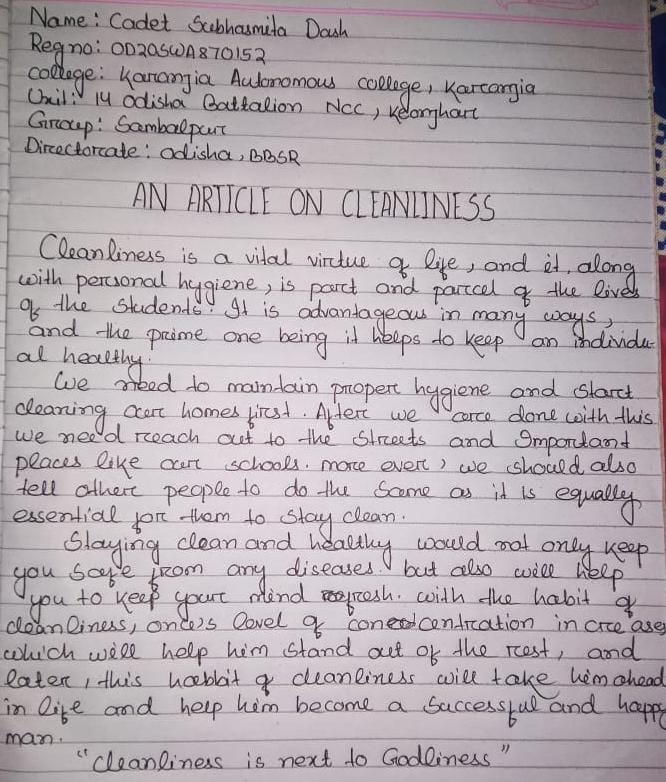 Name: Cadet Subhasmita Dash
Reg no: OD20SWA870152
college: Karanjia Autonomous college, Karanjia
Unit: 14 Odisha Battalion Ncc, Keonjhar
Group: Sambalpur
Directorate: Odisha, BBSR
AN ARTICLE ON CLEANLINESS
Cleanliness is a vital virtue of life, and it, along
with personal hygiene, is part and parcel of the lives
of the students. It is advantageous in many ways,
and the prime one being it helps to keep an individu-
al healthy.
We need to maintain proper hygiene and start
cleaning our homes first. After we are done with this
we need reach out to the streets and Important
places like our schools. more ever, we should also
tell other people to do the same as it is equally
essential for them to stay clean.
Staying clean and healthy would not only keep
you safe from any diseases. but also will help
you to keep your mind refresh. with the habit of
cleanliness, one's level of concentration increases
which will help him stand out of the rest, and
later, this habbit of cleanliness will take him ahead
in life and help him become a successful and happy
man.
"Cleanliness is next to Godliness"